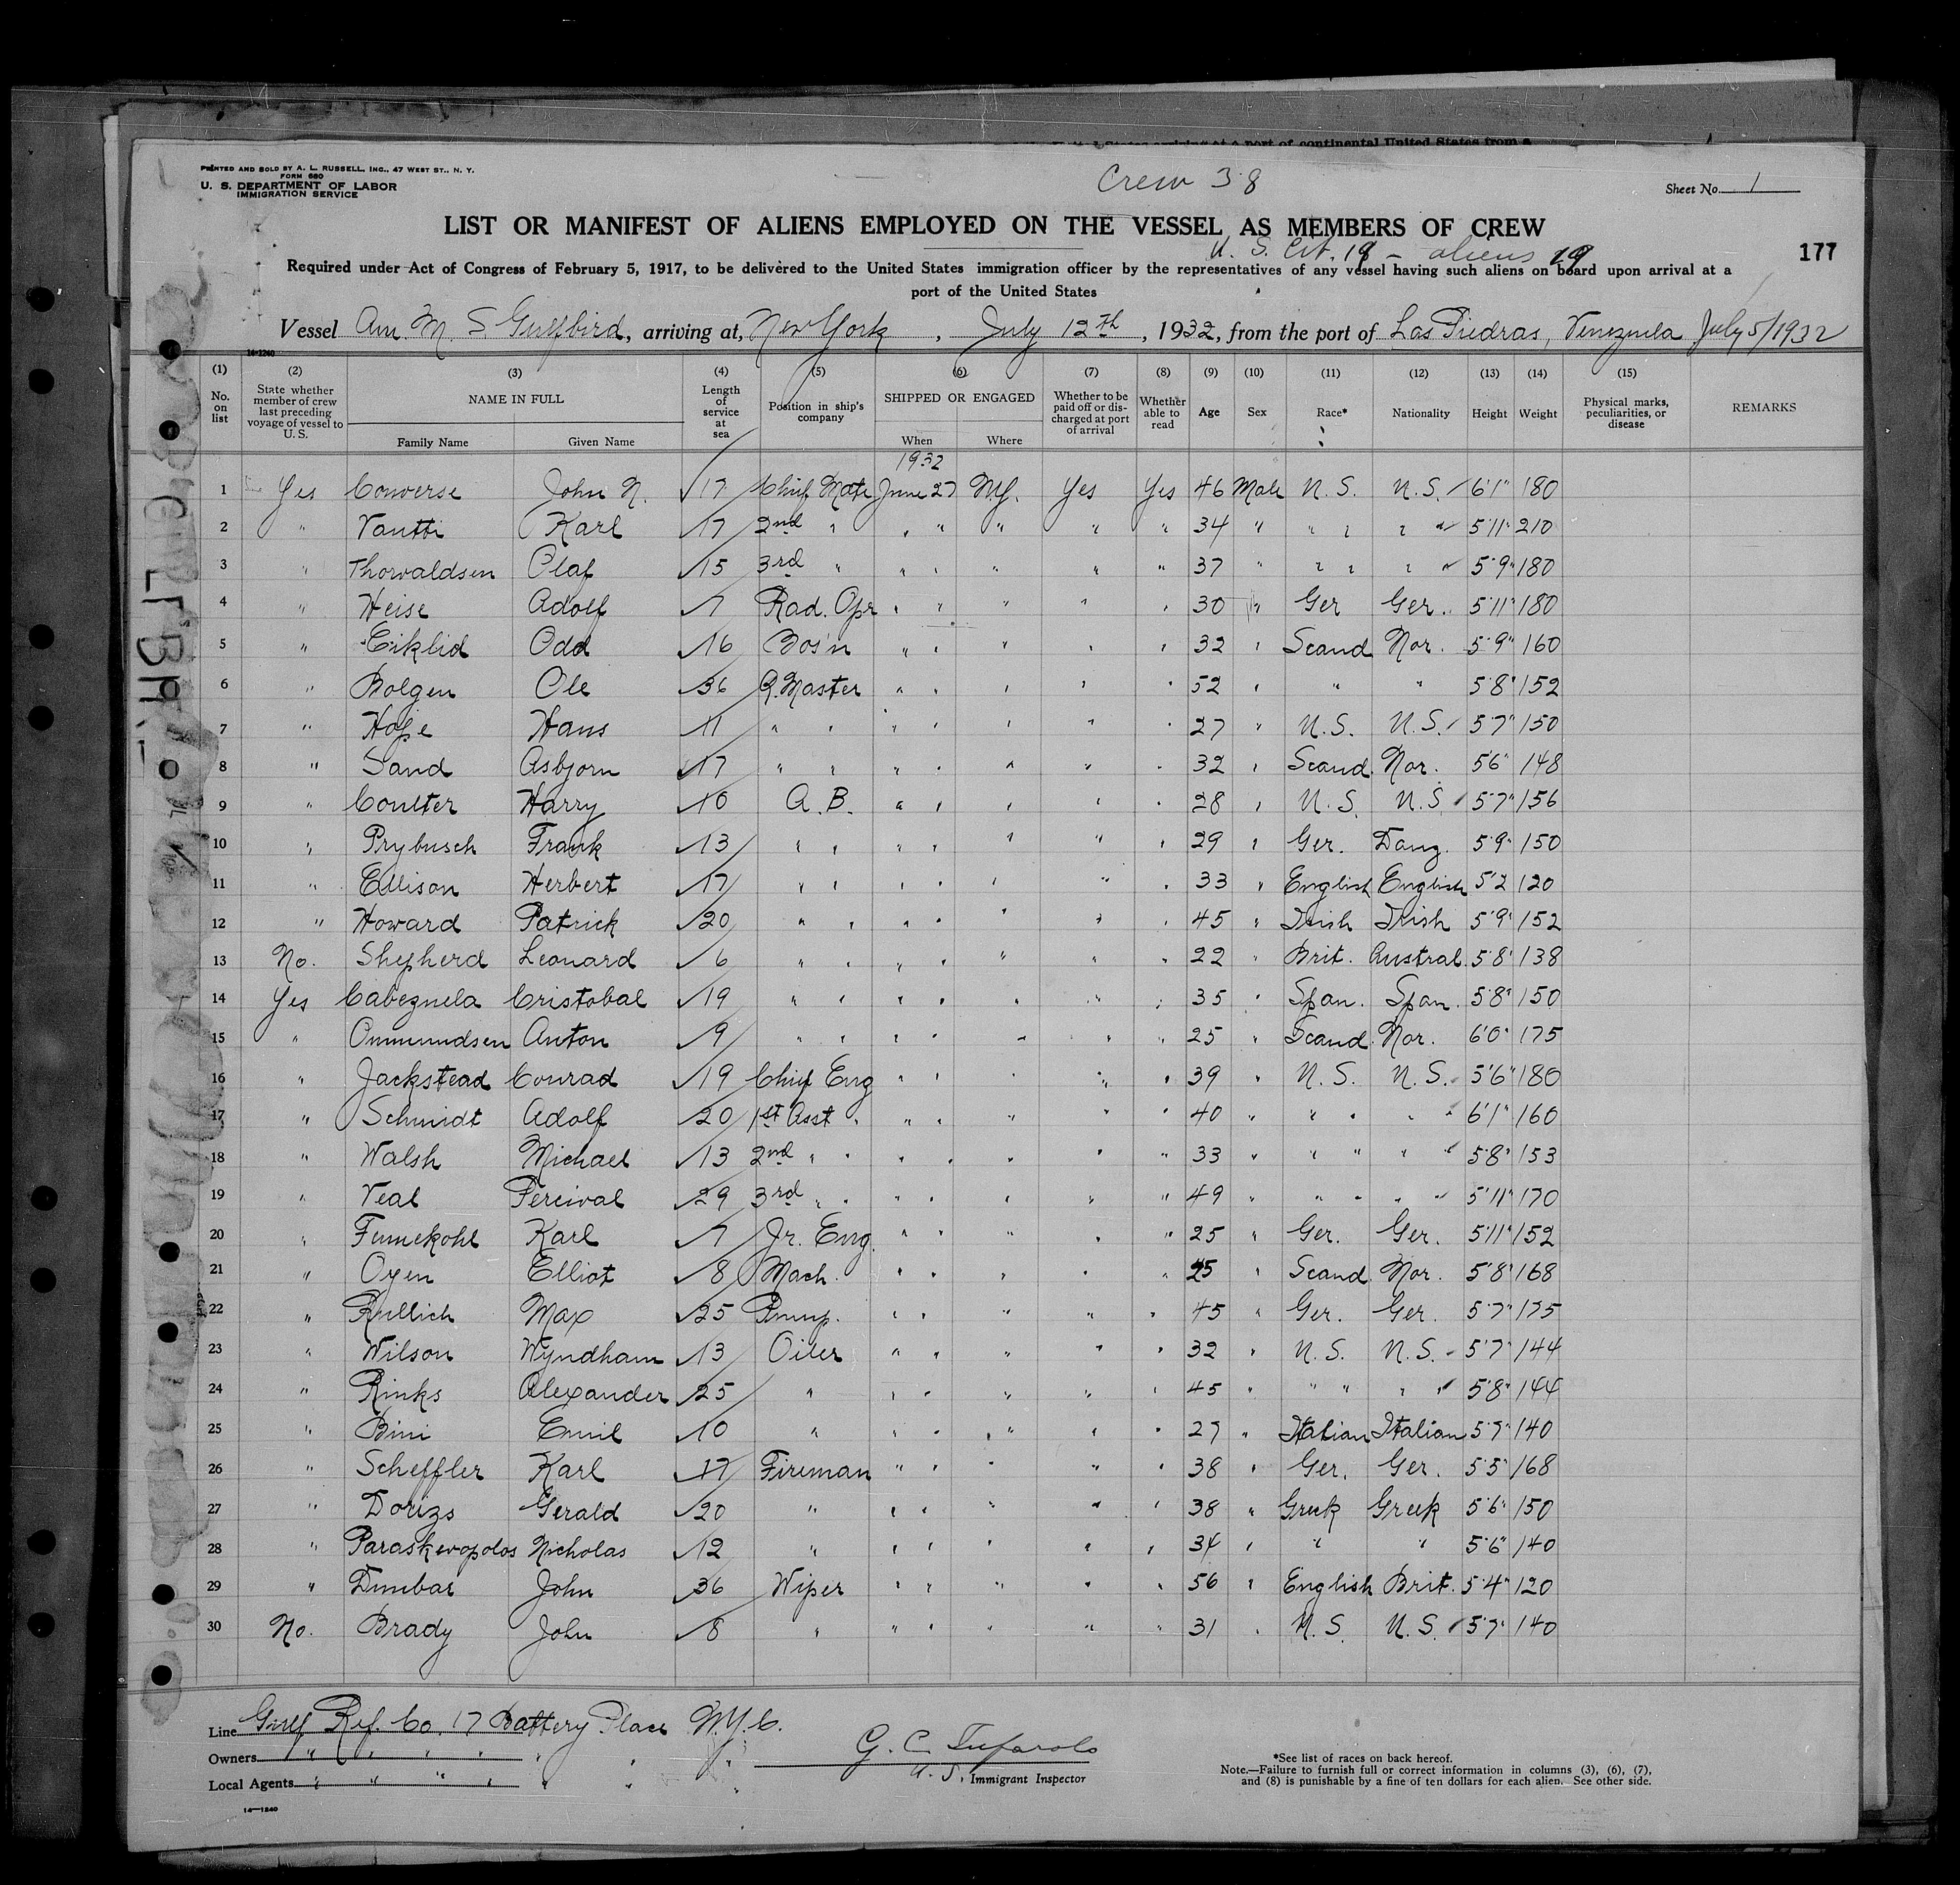 PRINTED AND SOLD BY A. L. RUSSELL, INC., 47 WEST ST., N. Y.
FORM 680
U. S. DEPARTMENT OF LABOR
IMMIGRATION SERVICE
Crew 38
Sheet No. 1
LIST OR MANIFEST OF ALIENS EMPLOYED ON THE VESSEL AS MEMBERS OF CREW
U. S. Cit. 19 - aliens 19
177
Required under Act of Congress of February 5, 1917, to be delivered to the United States immigration officer by the representatives of any vessel having such aliens on board upon arrival at a
port of the United States
Vessel Am. M. S. Gulfbird, arriving at, New York, July 12th, 1932, from the port of Las Piedras, Venezuela July 5/1932
14-1240
(1) (2) (3) (4) (5) (6) (7) (8) (9) (10) (11) (12) (13) (14) (15)
No. on list | State whether member of crew last preceding voyage of vessel to U. S. | NAME IN FULL | Length of service at sea | Position in ship's company | SHIPPED OR ENGAGED | Whether to be paid off or discharged at port of arrival | Whether able to read | Age | Sex | Race* | Nationality | Height | Weight | Physical marks, peculiarities, or disease | REMARKS
Family Name | Given Name | When | Where
1932
1 Yes Converse John N. 17 Chief Mate June 27 NY. Yes Yes 46 Male U.S. U.S. 6'1" 180
2 " Vantti Karl 17 2nd " " " " " " 34 " " " " " 5'11" 210
3 " Thorvaldsen Olaf 15 3rd " " " " " " 37 " " " " " 5'9" 180
4 " Heise Adolf 7 Rad. Opr " " " " " 30 " Ger Ger. 5'11" 180
5 " Eiklid Odd 16 Bos'n " " " " " 32 " Scand Nor. 5'9" 160
6 " Bolgen Ole 36 Q.Master " " " " " 52 " " " 5'8" 152
7 " Hope Hans 11 " " " " " " " 27 " U.S. U.S. 5'7" 150
8 " Sand Asbjorn 17 " " " " " " " 32 " Scand. Nor. 5'6" 148
9 " Coulter Harry 10 A.B. " " " " " 28 " U.S. U.S. 5'7" 156
10 " Prybusch Frank 13 " " " " " " " 29 " Ger. Dang. 5'9" 150
11 " Ellison Herbert 17 " " " " " " " 33 " English English 5'2 120
12 " Howard Patrick 20 " " " " " " " 45 " Irish Irish 5'9" 152
13 No. Shepherd Leonard 6 " " " " " " " 22 " Brit. Austral. 5'8" 138
14 Yes Cabeznela Cristobal 19 " " " " " " " 35 " Span. Span. 5'8" 150
15 " Ommundsen Anton 9 " " " " " " " 25 " Scand. Nor. 6'0" 175
16 " Jackstead Conrad 19 Chief Eng " " " " " 39 " U.S. U.S. 5'6" 180
17 " Schmidt Adolf 20 1st Asst " " " " " " 40 " " " " " 6'1" 160
18 " Walsh Michael 13 2nd " " " " " " " 33 " " " " " 5'8" 153
19 " Veal Percival 29 3rd " " " " " " " 49 " " " " " 5'11" 170
20 " Karl 7 Jr. Eng. " " " " " 25 " Ger. Ger. 5'11" 152
21 " Oyen Elliot 8 Mach. " " " " " 25 " Scand. Nor. 5'8" 168
22 " Rullich Max 25 Pump. " " " " " 45 " Ger. Ger. 5'7" 175
23 " Wilson Wyndham 13 Oiler " " " " " 32 " U.S. U.S. 5'7" 144
24 " Rinks Alexander 25 " " " " " " 45 " " " " " 5'8" 144
25 " Bini Emil 10 " " " " " " 27 " Italian Italian 5'7" 140
26 " Scheffler Karl 17 Fireman " " " " " 38 " Ger. Ger. 5'5" 168
27 " Dorizs Gerald 20 " " " " " " 38 " Greek Greek 5'6" 150
28 " Paraskevopolos Nicholas 12 " " " " " " 34 " " " 5'6" 140
29 " Dunbar John 36 Wiper " " " " " 56 " English Brit. 5'4" 120
30 No. Brady John 8 " " " " " " 31 " U.S. U.S. 5'7" 140
Line Gulf Ref. Co. 17 Battery Place N.Y.C.
Owners " " " " " " "
Local Agents " " " " " " "
U. S. Immigrant Inspector
*See list of races on back hereof.
Note.—Failure to furnish full or correct information in columns (3), (6), (7),
and (8) is punishable by a fine of ten dollars for each alien. See other side.
14—1240